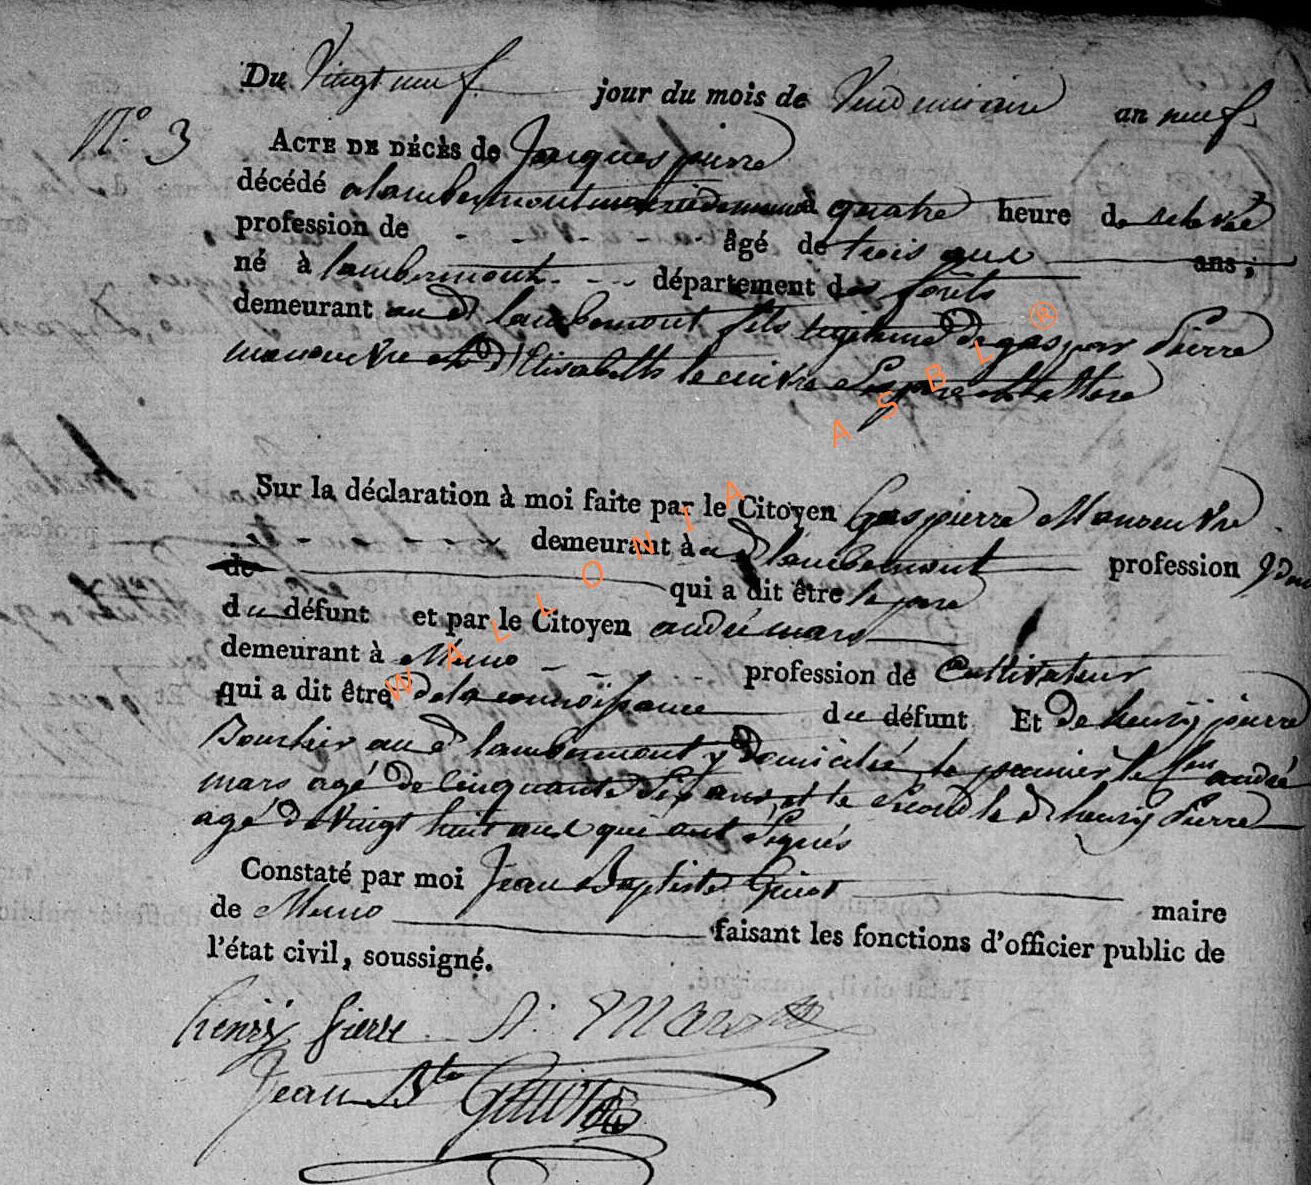 Du Vingt neuf jour du mois de Vendemiaire an neuf
N.° 3
ACTE DE DÉCÈS de Jacques pierre
décédé a lambermont quatre heure de relevée
profession de - - - - - - âgé de trois ans ans ;
né à lambermont - - - département des forêts
demeurant au d lambermont fils legitime de gaspar Pierre
manoeuvre et d'Elisabeth le cuivre Ses pere et Mere
Sur la déclaration à moi faite par le Citoyen Gas pierre Manoeuvre
- - - - - - demeurant à au d lambermont profession
de qui a dit être le pere
du défunt et par le Citoyen andré mars
demeurant à Muno - - - profession de Cultivateur
qui a dit être de la connoissance du défunt Et de henry pierre
au d lambermont y domicilié, le premier le andré
mars agé de Cinquante Sept ans, et le Second le d henry Pierre
agé de Vingt huit ans qui ont Signés
Constaté par moi Jean Baptiste Guiot maire
de Muno faisant les fonctions d'officier public de
l'état civil, soussigné.
henry pierre A. Marst
Jean Bte Guiot
WALLONIA ASBL ®